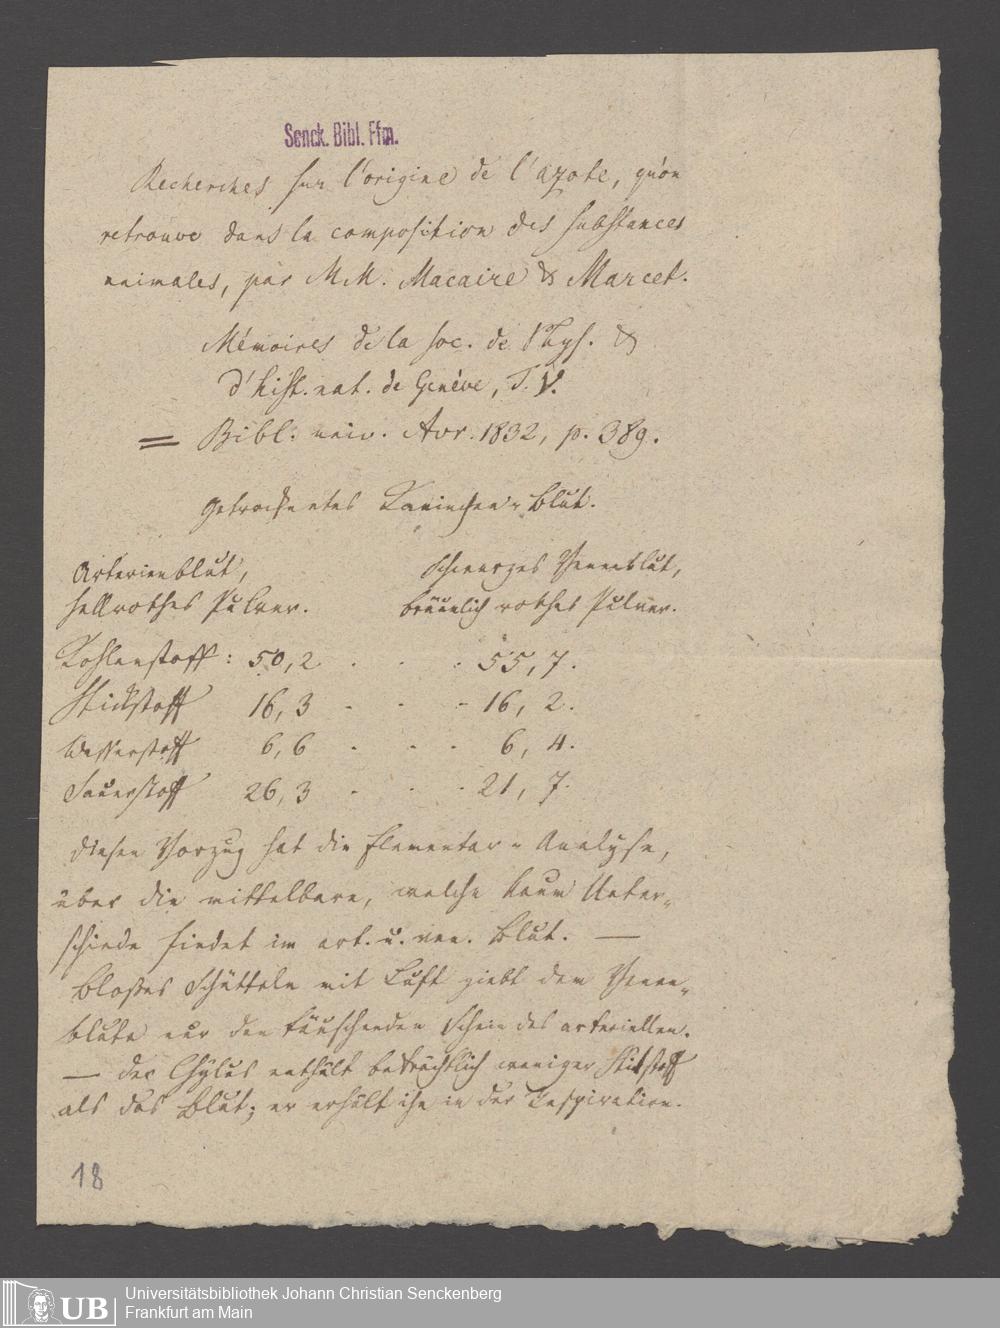 Senck. Bibl. Ffm.
Recherches sur l'origine de l'azote, qu'on
retrouve dans la composition des substances
animales, par MM. Macaire & Marcet.
Mémoires de la soc. de Phys. &
d'hist. nat. de Genève, T. V.
= Bibl. univ. Avr. 1832, p. 389.
Getrocknetes Kaninchen-Blut.
Arterienblut, schwarzes Venenblut,
hellrothes Pulver. bräunlich rothes Pulver.
Kohlenstoff: 50,2 . . . 55,7.
Stickstoff 16,3 - - - 16,2.
Wasserstoff 6,6 . . . 6,4.
Sauerstoff 26,3 . . . 21,7.
Diesen Vorzug hat die Elementar-Analyse,
über die mittelbare, welche kaum Unter-
schiede findet im art. u. ven. Blut. —
Bloßes Schütteln mit Luft giebt dem Venen-
blute nur den täuschenden Schein des arteriellen.
— Der Chylus enthält beträchtlich weniger Stickstoff
als das Blut; er erhält ihn in der Respiration.
18
UB
Universitätsbibliothek Johann Christian Senckenberg
Frankfurt am Main